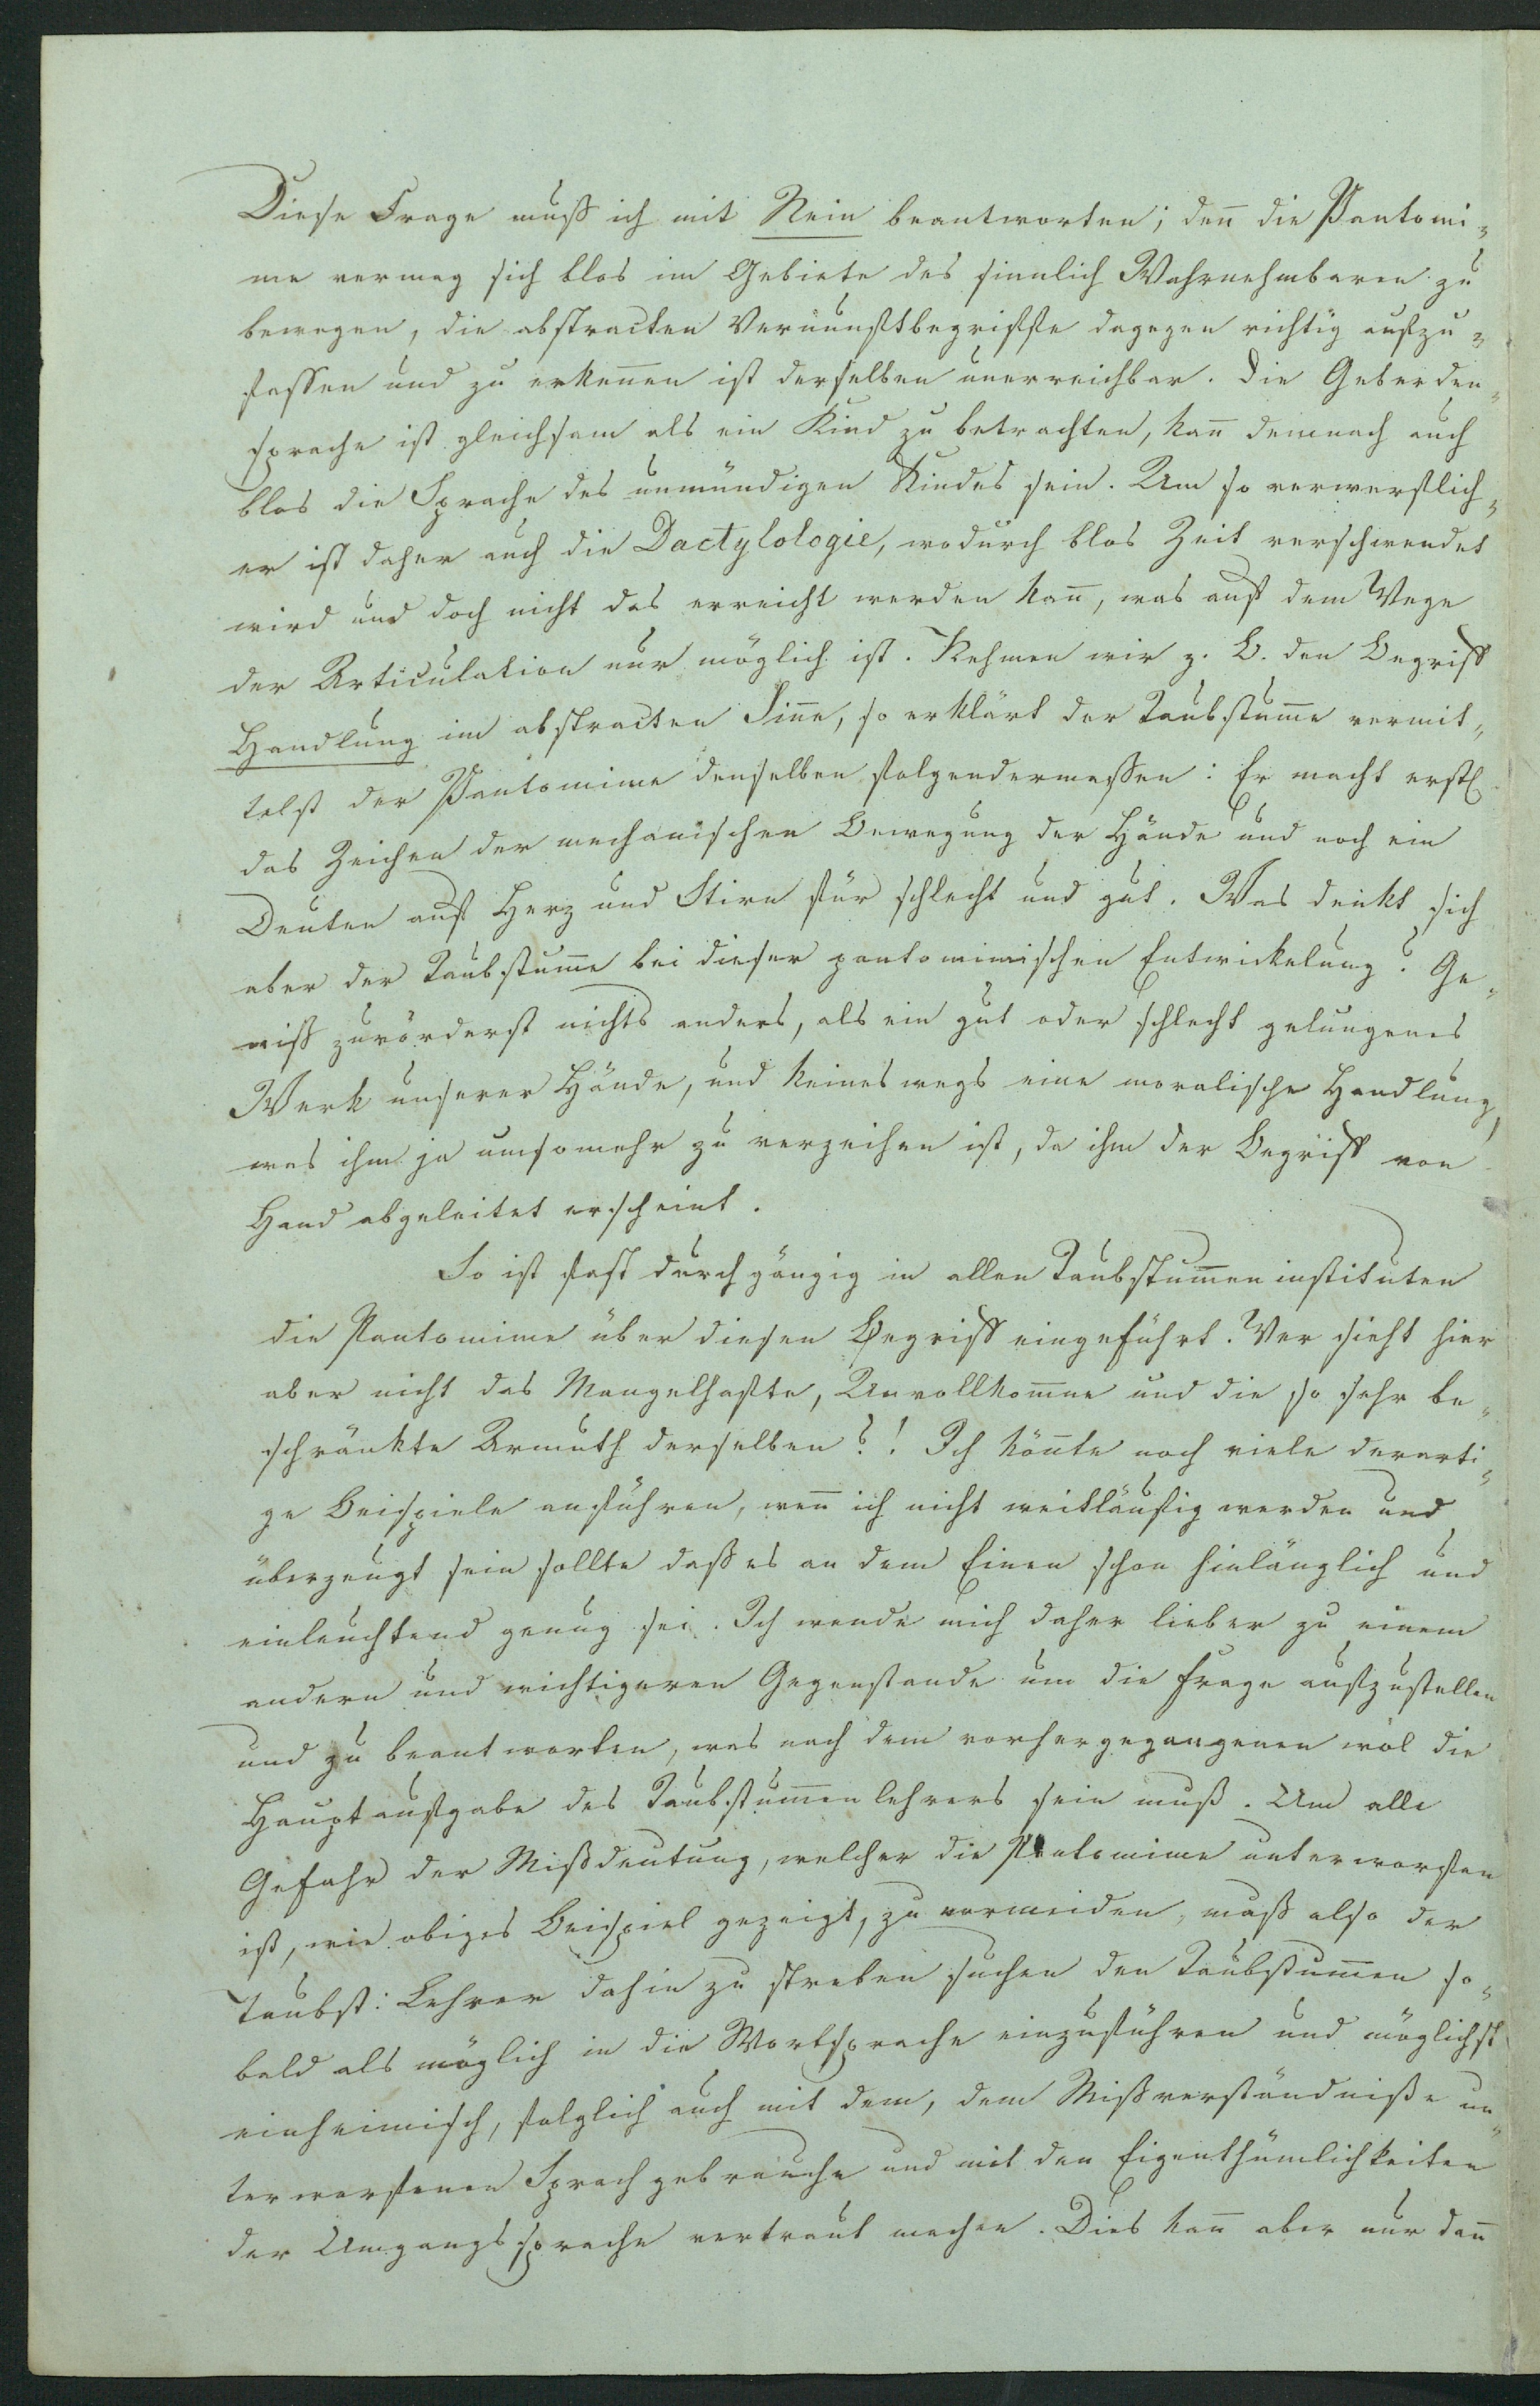 Diese Frage muß ich mit Nein beantworten; den̅ die Pantomi-
me vermag sich blos im Gebiete des sinnlich Wahrnehmbaren zu
bewegen, die abstracten Vernunftbegriffe dagegen richtig aufzu-
fassen und zu erken̅en ist derselben unerreichbar. Die Geberden-
sprache ist gleichsam als ein Kind zu betrachten, kan̅ demnach auch
blos die Sprache des unmündigen Kindes sein. Um so verwerflich-
er ist daher auch die Dactylologie, wodurch blos Zeit verschwendet
wird und doch nicht das erreicht werden kan̅, was auf dem Wege
der Articulation nur möglich ist. Nehmen wir z. B. den Begriff
Handlung im abstracten Sin̅e, so erklärt der Taubstum̅e vermit-
telst der Pantomime denselben folgendermassen: Er macht erstl.
das Zeichen der mechanischen Bewegung der Hände und noch ein
Deuten auf Herz und Stirn für schlecht und gut. Was denkt sich
aber der Taubstum̅e bei dieser pantomimischen Entwickelung? Ge-
wiß zuvörderst nichts anders, als ein gut oder schlecht gelungenes
Werk unserer Hände, und keineswegs eine moralische Handlung,
was ihm ja umsomehr zu verzeihen ist, da ihm der Begriff von
Hand abgeleitet erscheint.
So ist fast durchgängig in allen Taubstum̅eninstituten
die Pantomime über diesen Begriff eingeführt. Wer sieht hier
aber nicht das Mangelhafte, Unvollkom̅ne und die so sehr be-
schränkte Armuth derselben?! Ich kön̅te noch viele derarti-
ge Beispiele anführen, wen̅ ich nicht weitläufig werden und
überzeugt sein sollte daß es an dem Einen schon hinlänglich und
einleuchtend genug sei. Ich wende mich daher lieber zu einem
andern und wichtigeren Gegenstande um die Frage aufzustellen
und zu beantworten, was nach dem vorhergegangenen wol die
Hauptaufgabe des Taubstum̅enlehrers sein muß. Um alle
Gefahr der Mißdeutung, welcher die Pantomime unterworfen
ist, wie obiges Beispiel gezeigt, zu vermeiden, muß also der
Taubst: Lehrer dahin zu streben suchen den Taubstum̅en so-
bald als möglich in die Wortsprache einzuführen und möglichst
einheimisch, folglich auch mit dem, dem Mißverständniße un-
terworfenen Sprachgebrauche und mit den Eigenthümlichkeiten
der Umgangssprache vertraut machen. Dies kan̅ aber nur dan̅